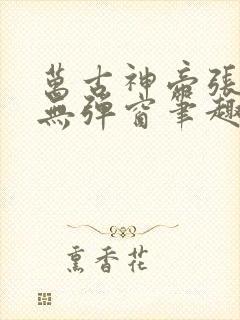 萬古神帝張
無彈窗筆趣
熏香花